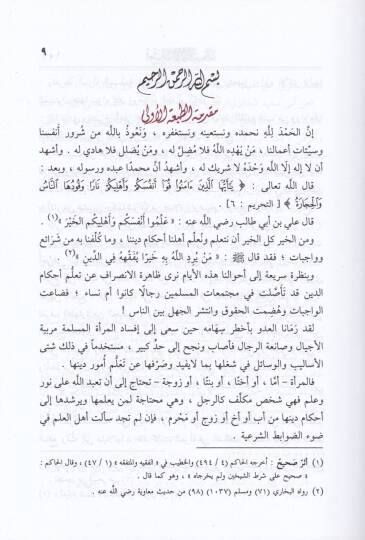 ٩
بسم الله الرحمن الرحيم
مقدمة الطبعة الأولى
إنَّ الحَمْدَ لِلَّهِ نحمده ونستعينه ونستغفره ، وَنَعُوذُ بِاللَّه من شُرور أَنفسنا
وسيّئات أعمالنا ، مَنْ يَهْدِه اللَّهُ فلا مُضِلَّ له ، ومَنْ يُضلل فلا هادي له . وأشهد
أن لا إله إلَّا اللَّه وَحْدَهُ لا شريك له ، وأشهدُ أنَّ محمدًا عبده ورسوله ، وبعد :
قال اللَّه تعالى : ﴿ يَٰٓأَيُّهَا ٱلَّذِينَ ءَامَنُوا۟ قُوٓا۟ أَنفُسَكُمْ وَأَهْلِيكُمْ نَارًا وَقُودُهَا ٱلنَّاسُ
وَٱلْحِجَارَةُ ﴾ [ التحريم : ٦ ] .
قال علي بن أبي طالب رضي اللَّه عنه : « عَلِّمُوا أَنْفُسَكُم وَأَهْلِيكُم الخَيْرَ » (١) .
ومن الخير كل الخير أن نتعلم ونُعلّم أهلنا أحكام ديننا ، وما كُلِّفنا به من شَرائع
وواجبات ؛ فقد قال ﷺ : « مَنْ يُرِدِ اللَّهُ بِهِ خَيْرًا يُفَقِّهْهُ فِي الدِّينِ » (٢) .
وبنظرة سريعة إلى أحوالنا هذه الأيام نرى ظاهرة الانصراف عن تعلُّم أحكام
الدين قد تَأَصَّلت في مجتمعات المسلمين رجالًا كانوا أم نساء ؛ فضاعت
الواجبات وهُضِمت الحقوق وانتشر الجهل بين الناس !
لقد رَمَانا العدو بأخطر سِهَامه حين سعى إلى إفساد المرأة المسلمة مربية
الأجيال وصانعة الرجال فأصاب ونجح إلى حدٍّ كبير ، مستخدماً في ذلك شتى
الأساليب والوسائل في شغلها بما لايفيد وصَرْفها عن تَعَلُّم أُمور دينها .
فالمرأة - أمًّا ، أو أختًا ، أو بنتًا ، أو زوجة - تحتاج إلى أن تعبد اللَّه على نور
وعلم فهي شخص مكلَّف كالرجل ، وهي محتاجة لمن يعلمها ويرشدها إلى
أحكام دينها من أب أو أخ أو زوج أو مَحْرم ، فإن لم تجد سألت أهل العلم في
ضوء الضوابط الشرعية .
(١) أثرٌ صَحيحٌ : أخرجه الحاكم (٤ / ٤٩٤) والخطيب في « الفقيه والمتفقه » (١ / ٤٧) ، وقال الحاكم :
« صحيح على شرط الشيخين ولم يخرجاه » ، وهو كما قال .
(٢) رواه البخاري (٧١) ومسلم (١٠٣٧) (٩٨) من حديث معاوية رضي اللَّه عنه .